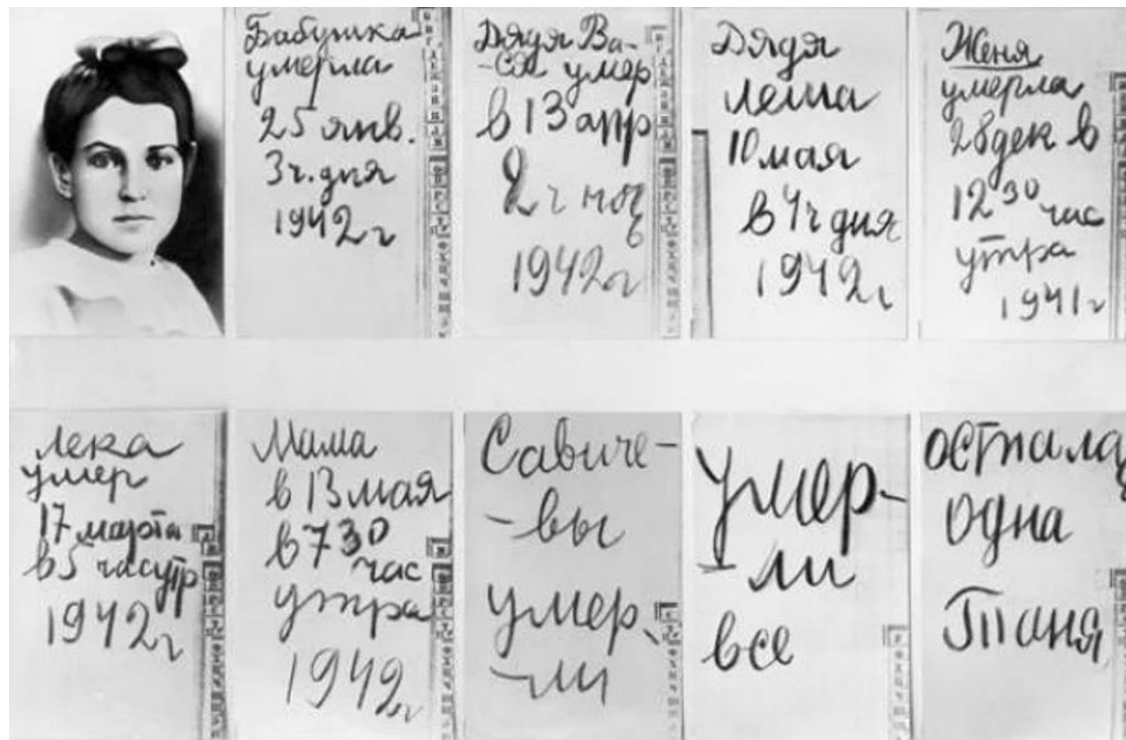 Бабушка
умерла
25 янв.
3ч. дня
1942 г
Дядя Ва-
-ся умер
в 13 апр
2 ч ноч
ь
1942 г
Дядя
Леша
10 мая
в 4ч дня
1942 г
Женя
умерла
28 дек в
12 30 час
утра
1941 г
Лека
умер
17 марта
в 5 час утр
1942 г
Мама
в 13 мая
в 7 30
час
утра
1942 г
Савиче-
-вы
умер-
-ли
умер-
-ли
все
осталас
одна
Таня